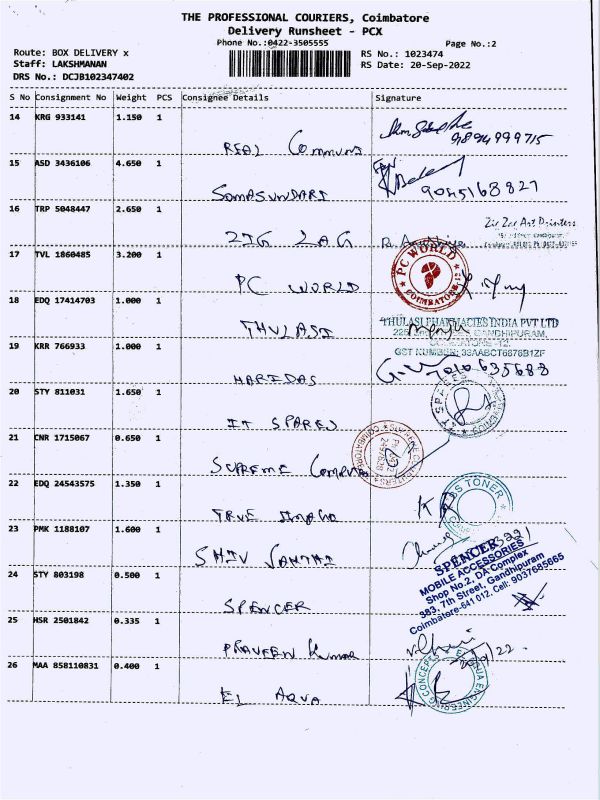 THE PROFESSIONAL COURIERS, Coimbatore
Delivery Runsheet - PCX
Phone No.:0422-3505555
Page No.:2
Route: BOX DELIVERY x
RS No.: 1023474
Staff: LAKSHMANAN
RS Date: 20-Sep-2022
DRS No.: DCJB102347402
S No Consignment No Weight PCS Consignee Details Signature
14 KRG 933141 1.150 1
REAL
9894999715
15 ASD 3436106 4.650 1
SOMASUNDARI
16 TRP 5048447 2.650 1
Zig Zag Art Printers
ZIG ZAG
17 TVL 1860485 3.200 1
PC WORLD
COIMBATORE-12
PC WORLD
18 EDQ 17414703 1.000 1
THULASI PHARMACIES INDIA PVT LTD
GANDHIPURAM,
THULASI
COIMBATORE -12.
19 KRR 766933 1.000 1
GST NUMBER: 33AABCT6876B1ZF
HARIDAS
20 STY 811031 1.650 1
IT SPARES
IT SPARES
21 CNR 1715067 0.650 1
SUPREME
22 EDQ 24543575 1.350 1
TONER
TRUE
23 PMK 1188107 1.600 1
SHIV
SPENCER
MOBILE ACCESSORIES
Shop No.2, DA Complex
383, 7th Street, Gandhipuram
Coimbatore-641 012. Cell: 9037685665
24 STY 803198 0.500 1
SPENCER
25 HSR 2501842 0.335 1
PRAVEEN Kumar
26 MAA 858110831 0.400 1
ENGINEERING CONCEPTS
EL AQUA